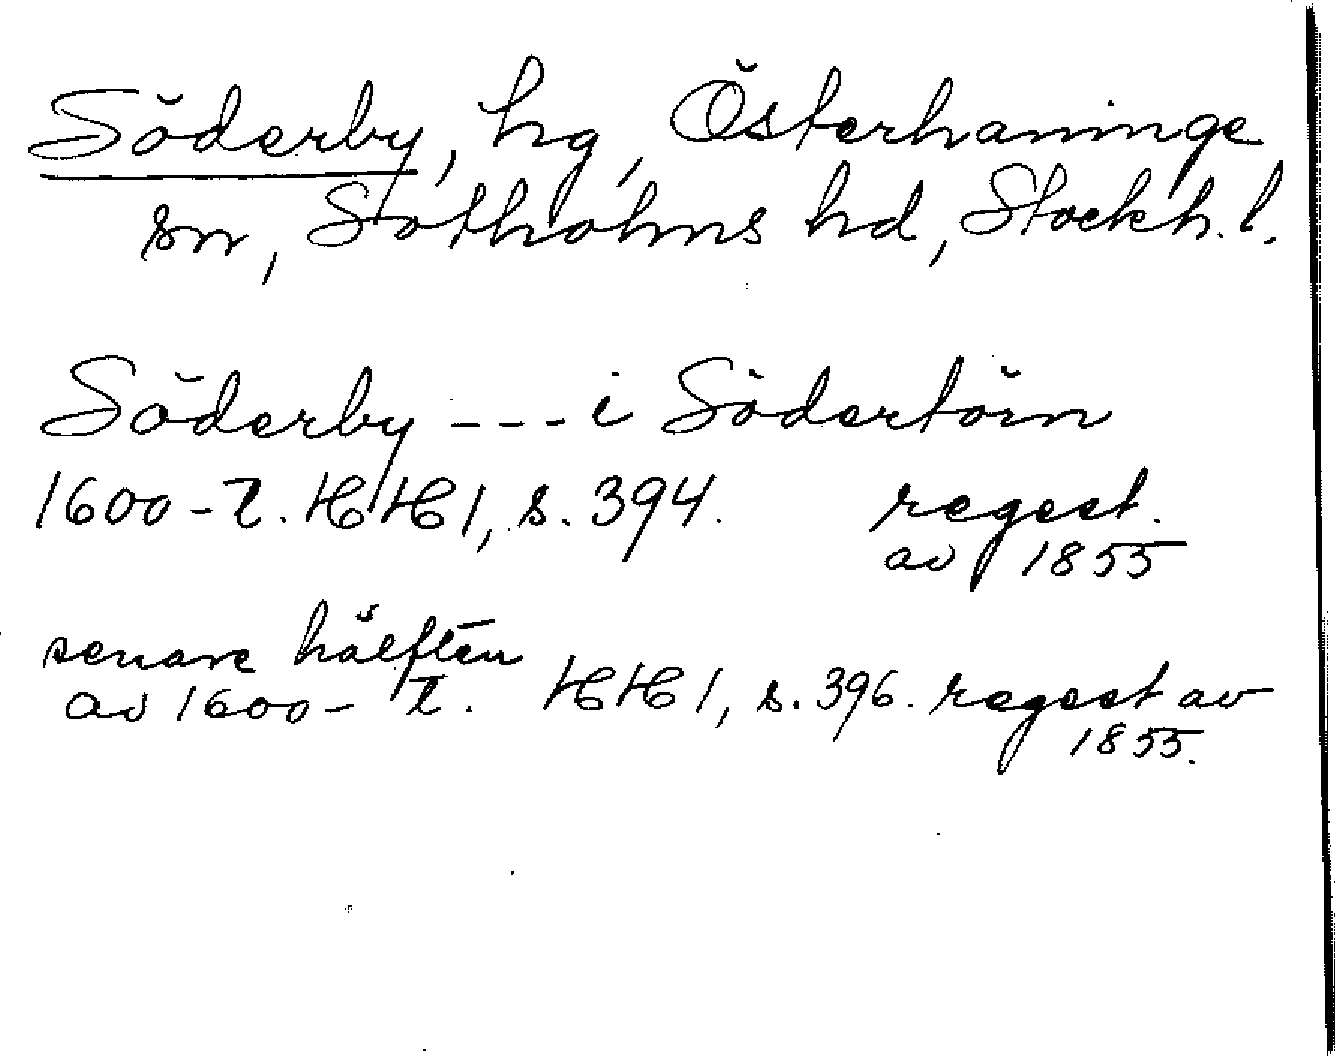 Söderby, hg, Österhaninge
sn, Sotholms hd, Stockh. l.
Söderby --- i Södertörn
1600-t. HH 1, s. 394. regest.
av 1855
senare hälften
av 1600-t. HH 1, s. 396. regest av
1855.